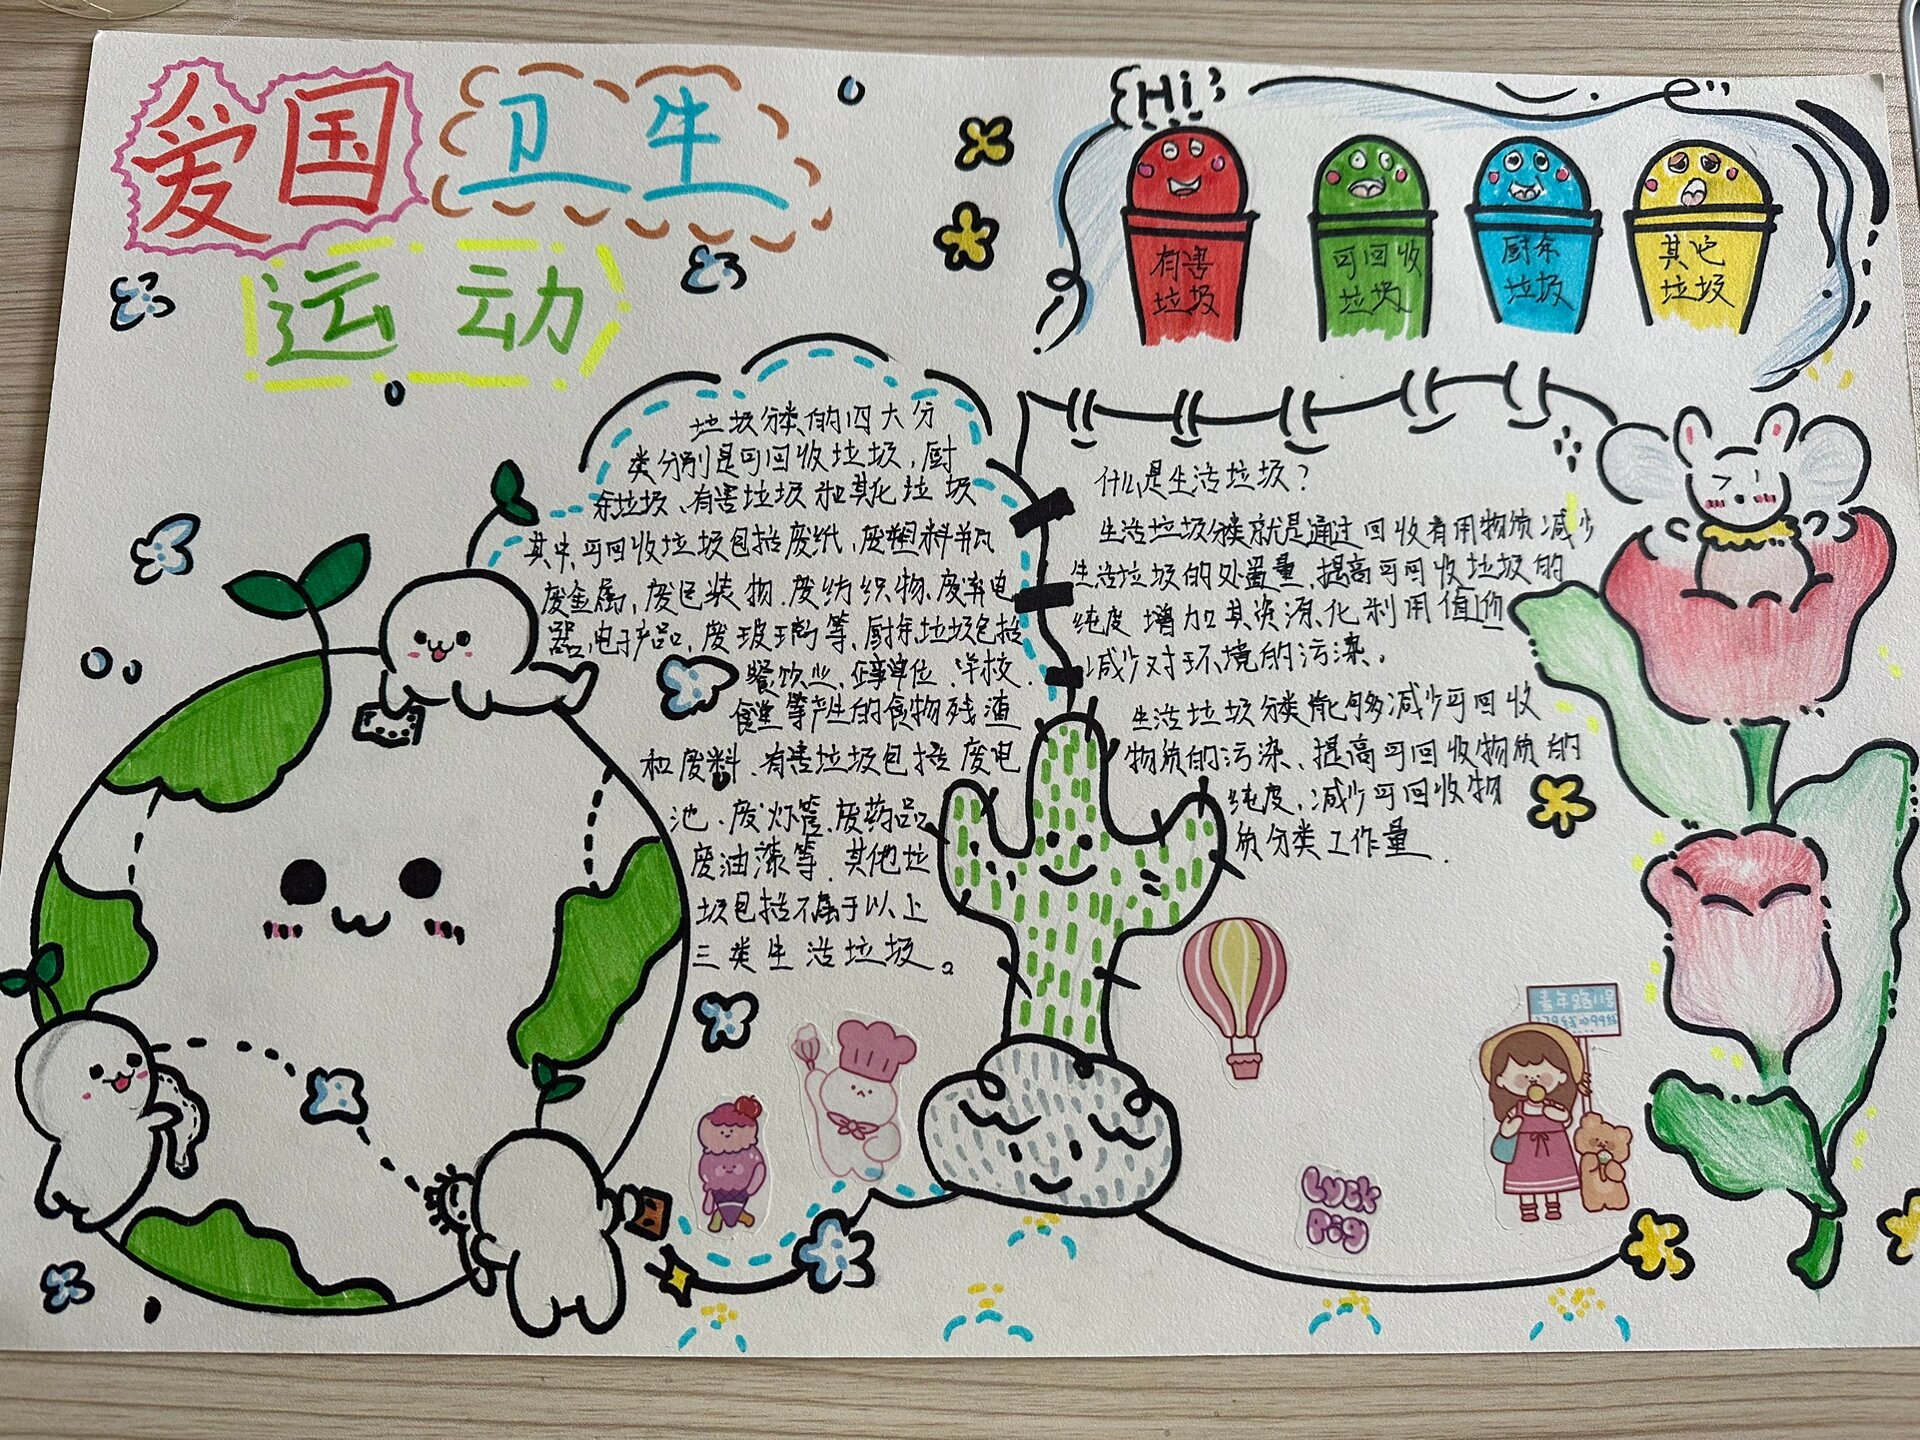 爱国卫生
运动
Hi
有害
垃圾
可回收
垃圾
厨余
垃圾
其它
垃圾
垃圾分类的四大分
类分别是可回收垃圾，厨
余垃圾、有害垃圾和其他垃圾
其中可回收垃圾包括废纸、废塑料瓶
废金属，废包装物、废纺织物、废弃电
器，电子产品，废玻璃等，厨余垃圾包括
餐饮业、企事单位、学校、
食堂等产生的食物残渣
和废料、有害垃圾包括废电
池、废灯管、废药品
废油漆等、其他垃
圾包括不属于以上
三类生活垃圾。
什么是生活垃圾？
生活垃圾分类就是通过回收有用物质减少
生活垃圾的处置量、提高可回收垃圾的
纯度 增加其资源化利用值价
减少对环境的污染。
生活垃圾分类能够减少可回收
物质的污染、提高可回收物质的
纯度，减少可回收物
质分类工作量.
青年路11号
Luck
Pig